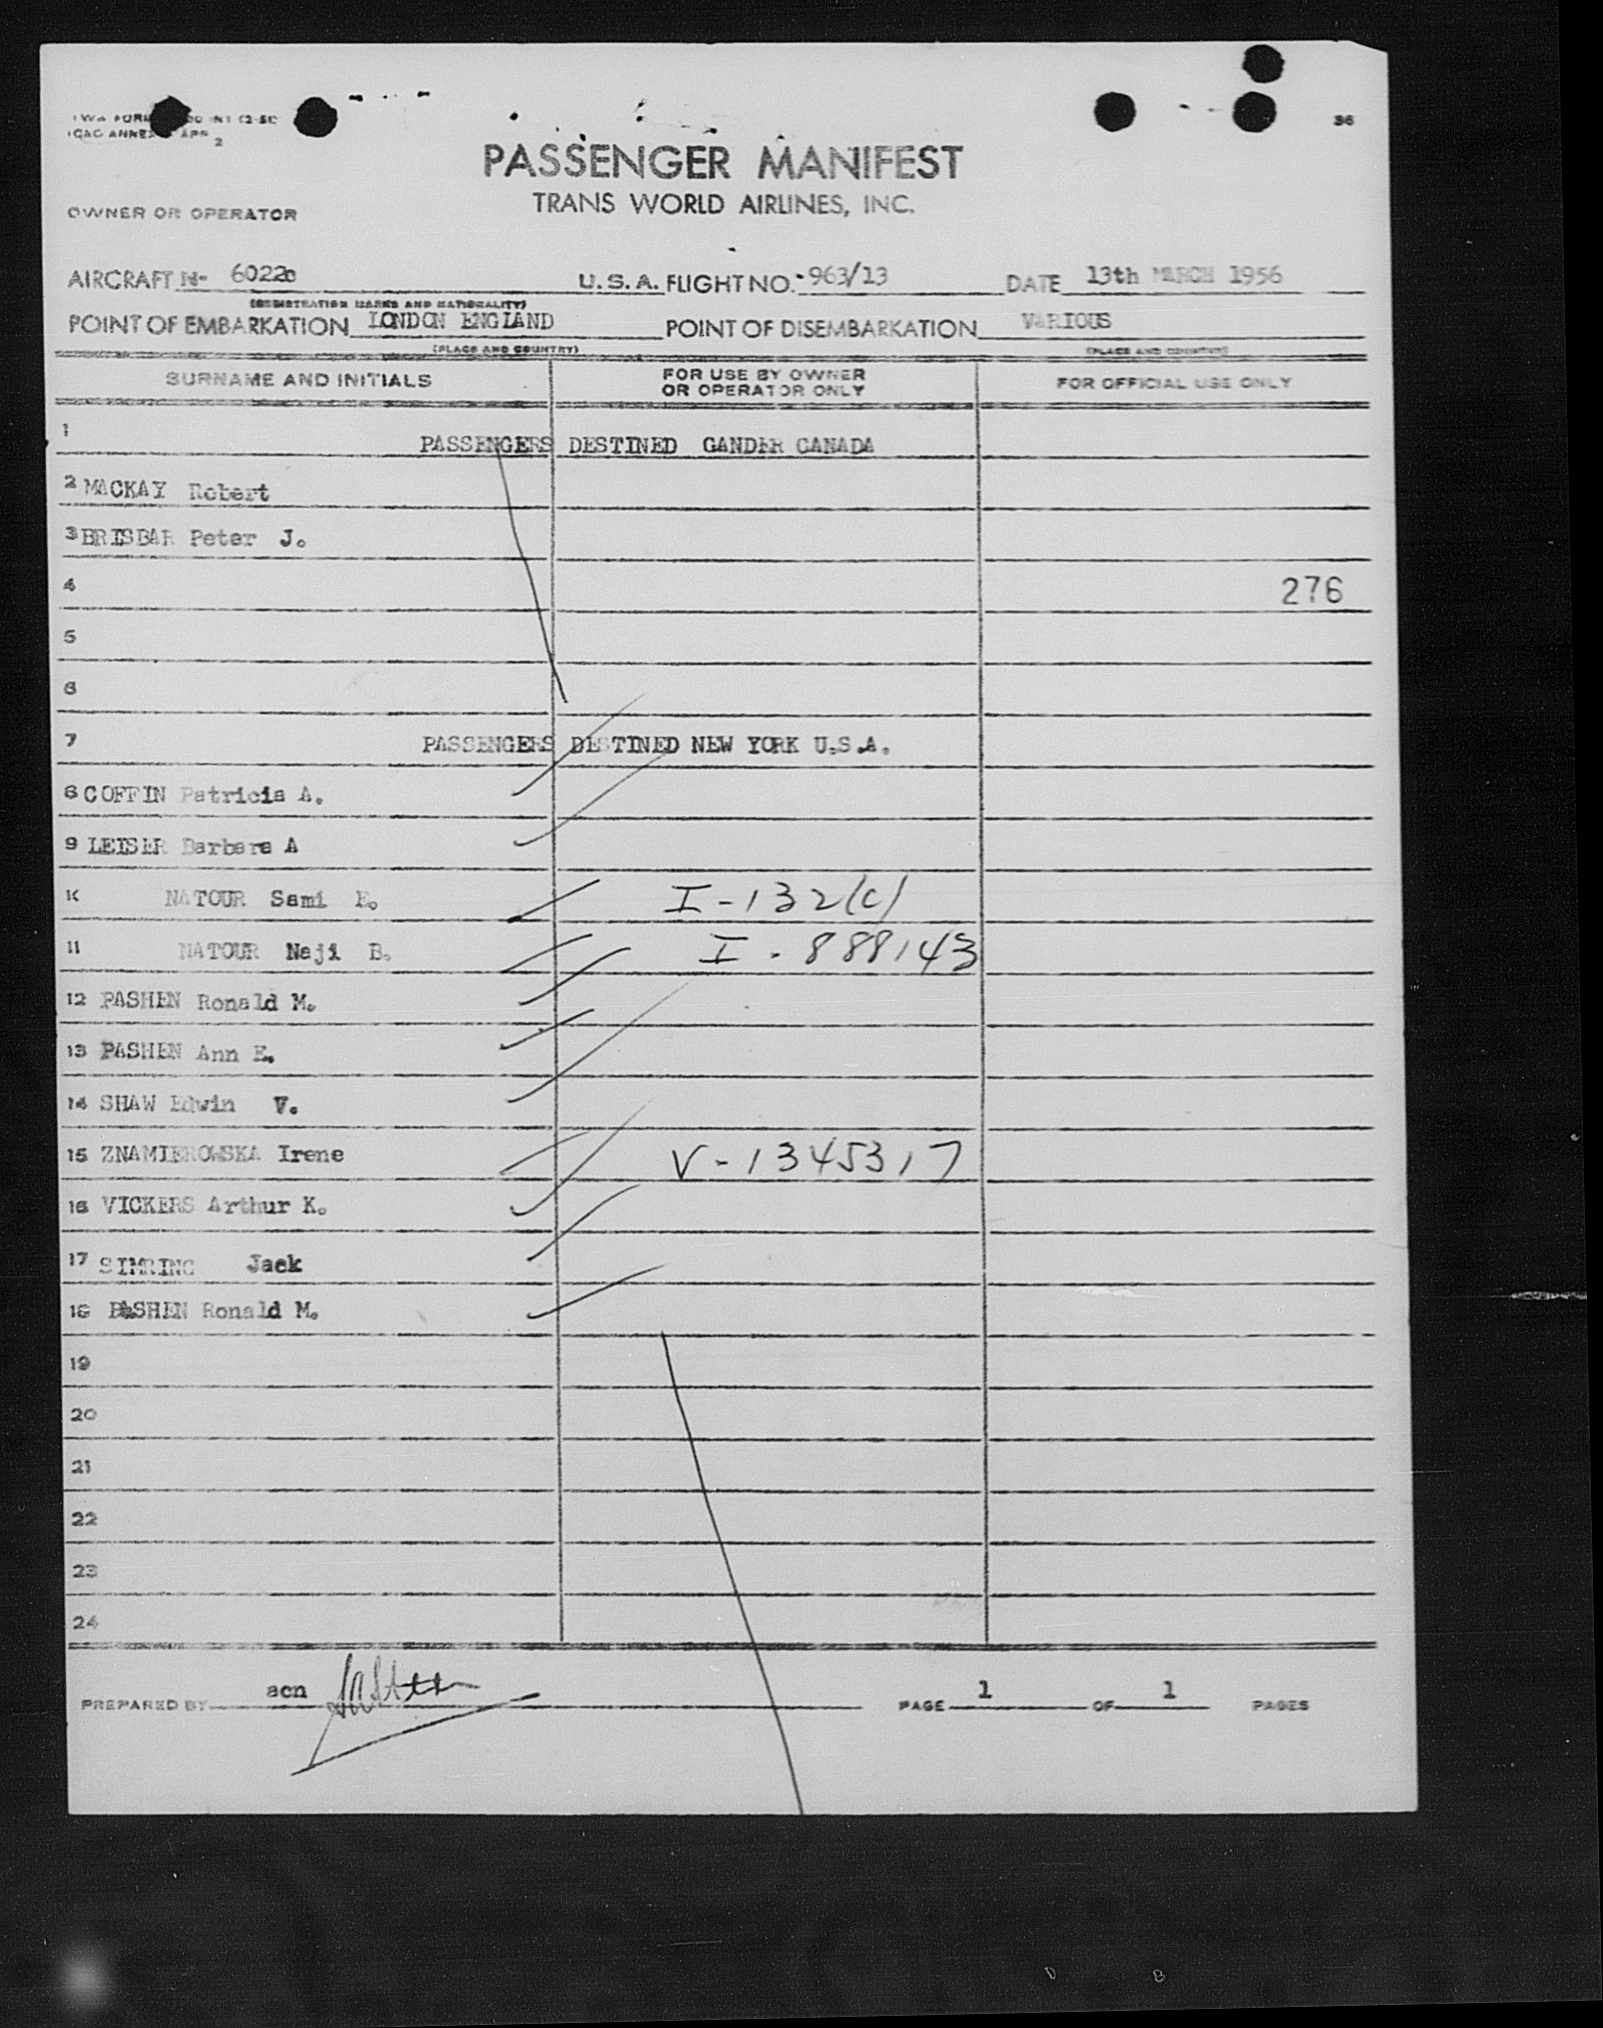 36
2
PASSENGER MANIFEST
TRANS WORLD AIRLINES, INC.
OWNER OR OPERATOR
AIRCRAFT N- 6022c U.S.A. FLIGHT NO. 963/13 DATE 13th MARCH 1956
(REGISTRATION MARKS AND NATIONALITY)
POINT OF EMBARKATION LONDON ENGLAND POINT OF DISEMBARKATION VARIOUS
(PLACE AND COUNTRY) (PLACE AND COUNTRY)
SURNAME AND INITIALS FOR USE BY OWNER OR OPERATOR ONLY FOR OFFICIAL USE ONLY
1 PASSENGERS DESTINED GANDER CANADA
2 MACKAY Robert
3 BRISBAR Peter J.
4 276
5
6
7 PASSENGERS DESTINED NEW YORK U.S.A.
8 COFFIN Patricia A.
9 LEISER Barbara A
10 NATOUR Sami E. I-132(c)
11 NATOUR Naji B. I-888143
12 PASHEN Ronald M.
13 PASHEN Ann E.
14 SHAW Edwin V.
15 ZNAMIEROWSKA Irene V-1345317
16 VICKERS Arthur K.
17 SIMRING Jack
18 PASHEN Ronald M.
19
20
21
22
23
24
PREPARED BY acn PAGE 1 OF 1 PAGES